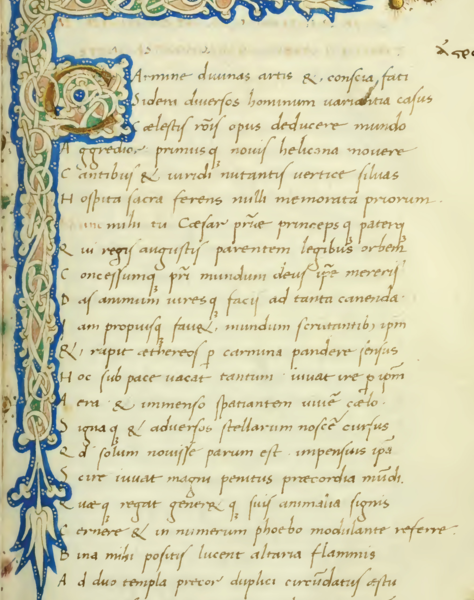 CArmine divinas artis &, conscia fati
Sidera diversos hominum variantia casus
Cælestis rõis opus deducere mundo
Aggredior primusq novis helicona movere
Cantibus & viridi nutantis vertice silvas
Hospita sacra ferens nulli memorata priorum.
mihi tu Cæsar prĩæ princepsq patrq
Qui regis augustis parentem legibus orbem
Concessumq pri mundum deus ipse mereris
Das animum viresq facis ad tanta canenda
Iam propiusq fav&, mundum scrutantibus ipm
&, cupit æthereos p carmina pandere sensus
Hoc sub pace vacat tantum. iuvat ire p ipm
Aera & immenso spatiantem vivere cælo.
Signaq & adversos stellarum noscẽ cursus
Qd solum novisse parum est. impensius ipa
Scire iuvat magni penitus præcordia mũdi.
Quæq regat gener&q suis animalia signis
Cernere & in numerum phoebo modulante referre.
Bina mihi positis lucent altaria flammis
Ad duo templa precor duplici circũdatus æstu